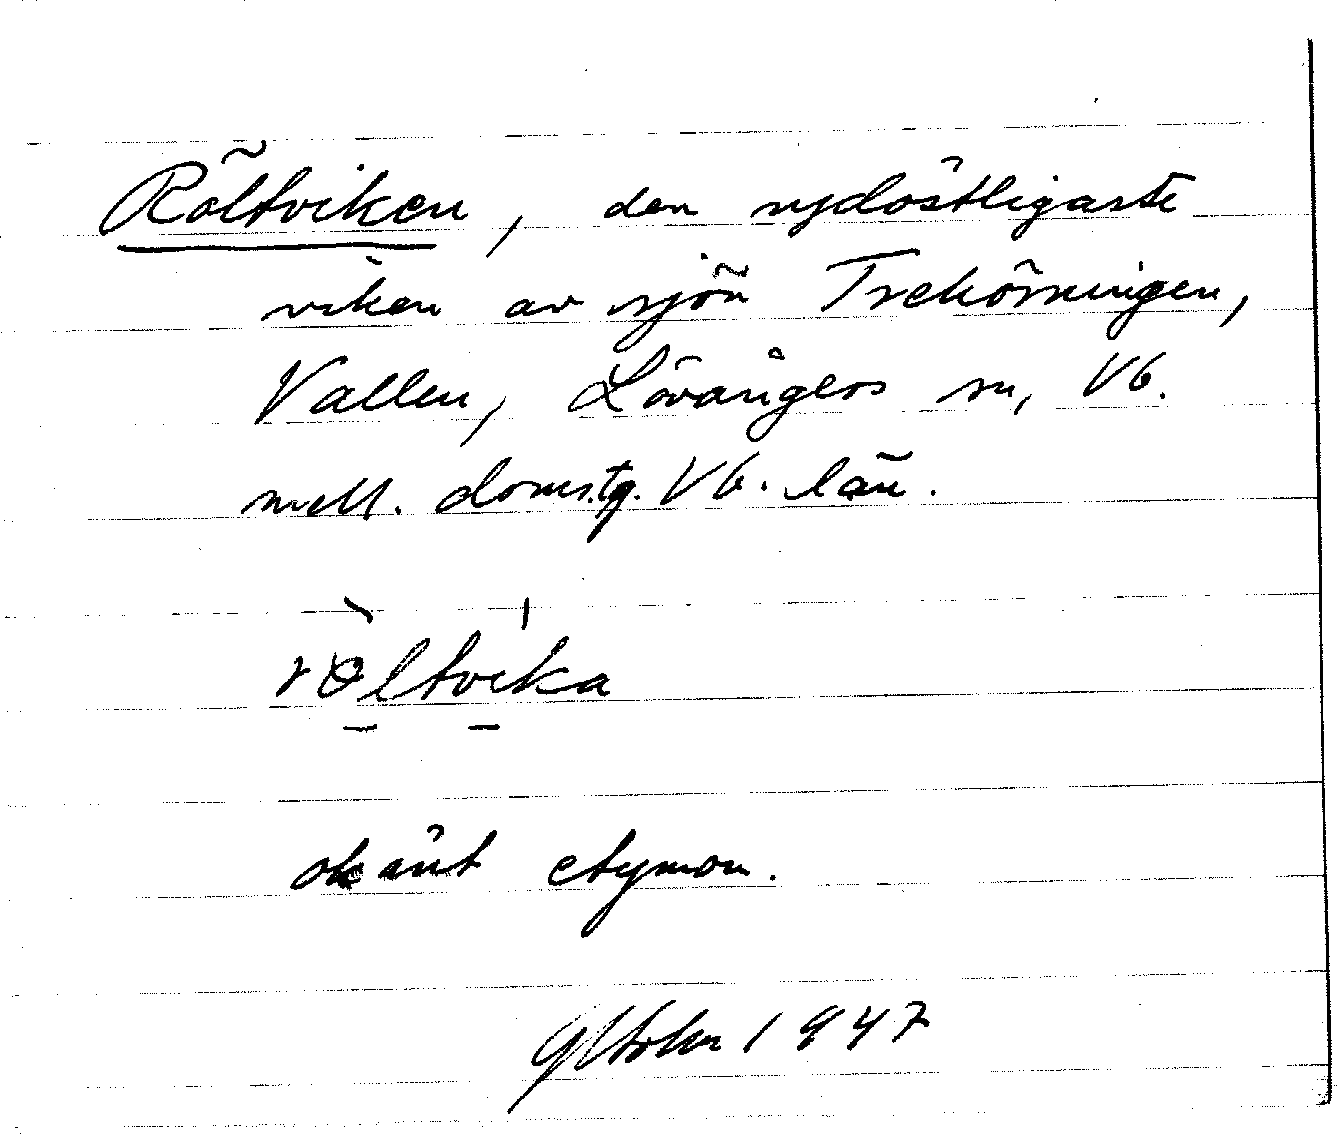 Röltviken, den sydöstligaste
viken av sjön Trehörningen,
Vallen, Lövångers sn, Vb.
mell. doms.tg. Vb. län.
rөltvika
okänt etymon.
1947